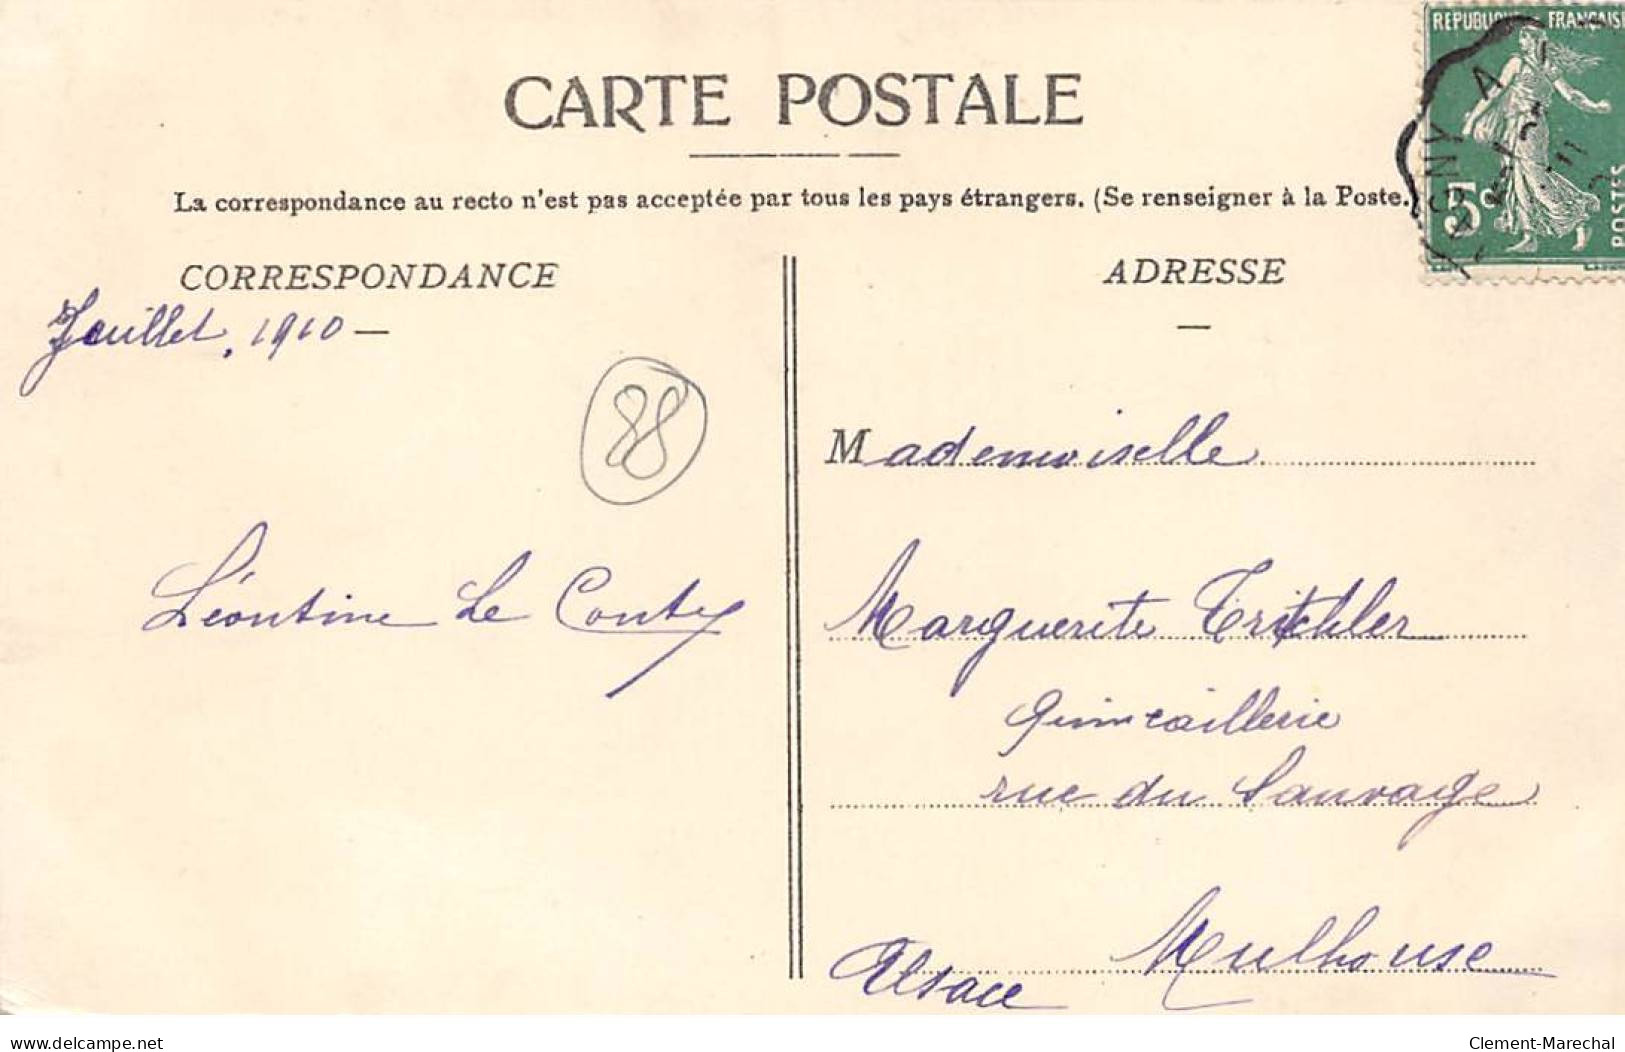 CARTE POSTALE
La correspondance au recto n'est pas acceptée par tous les pays étrangers. (Se renseigner à la Poste.)
REPUBLIQUE FRANÇAISE
5c
POSTES
CORRESPONDANCE
Juillet, 1910 —
88
Léontine Le Conte
ADRESSE
Mademoiselle
Marguerite
Quincaillerie
rue du Sauvage
Mulhouse
Alsace
www.delcampe.net
Clement-Marechal